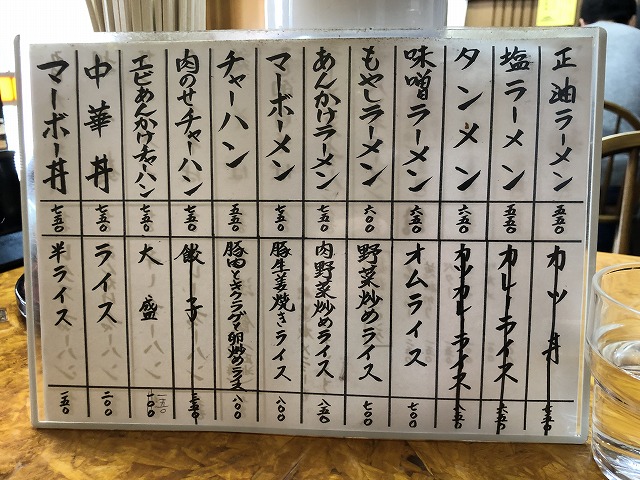 正油ラーメン 五五〇
塩ラーメン 五五〇
タンメン 六五〇
味噌ラーメン 六五〇
もやしラーメン 六〇〇
あんかけラーメン 七五〇
マーボーメン 七五〇
チャーハン 五五〇
肉のせチャーハン 七五〇
エビあんかけチャーハン 七五〇
中華丼 七五〇
マーボー丼 七五〇
カツ丼
カレーライス 六五〇
カツカレーライス 八五〇
オムライス 七〇〇
野菜炒めライス 七〇〇
肉野菜炒めライス 八五〇
豚生姜焼きライス 八〇〇
豚肉ときクラゲ卵炒めライス 八〇〇
餃子
大盛 一〇〇
ライス 二〇〇
半ライス 一五〇